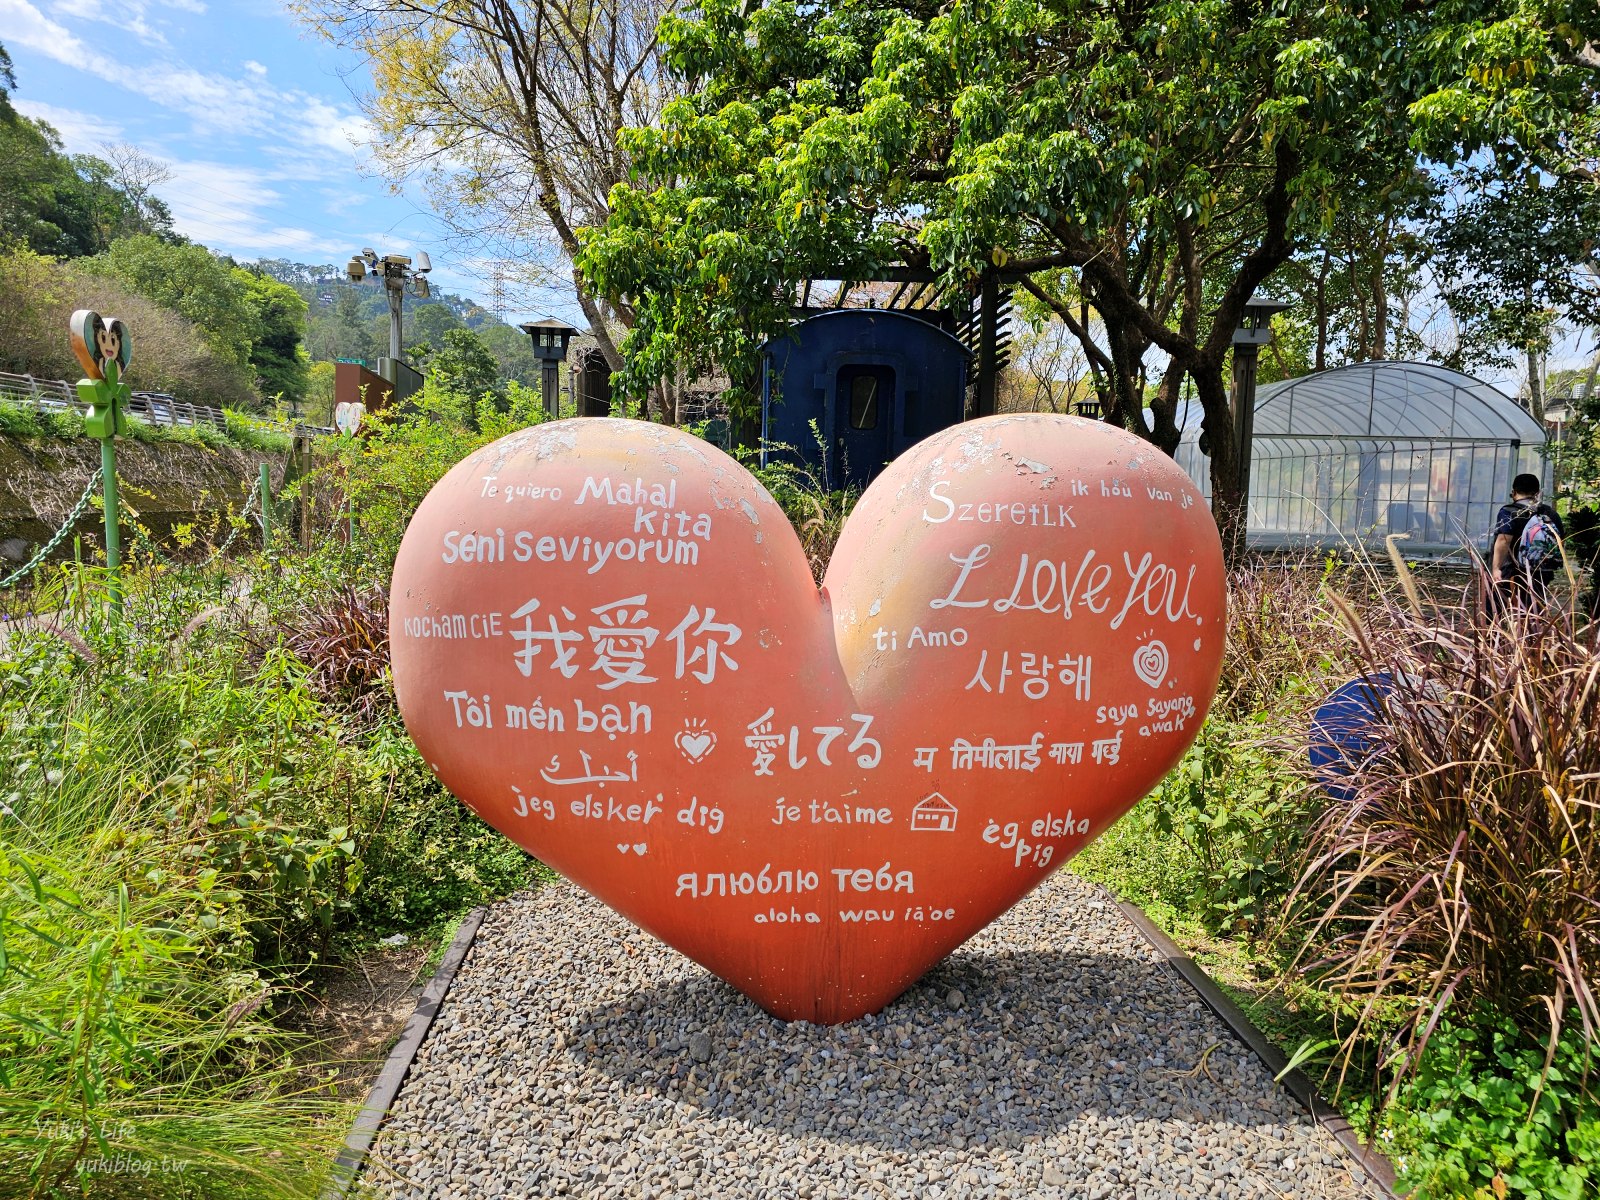 Te quiero
Mahal
kita
Seni seviyorum
kocham ciE
我愛你
Tôi mến bạn
أحبك
jeg elsker dig
SzeretLK
ik hou van je
I Love You.
ti Amo
사랑해
saya sayang
awak
愛してる
म तिमीलाई माया गर्छु
je t'aime
ég elska
þig
ялюблю тебя
aloha wau iā'oe
Yuki's Life
yukiblog.tw